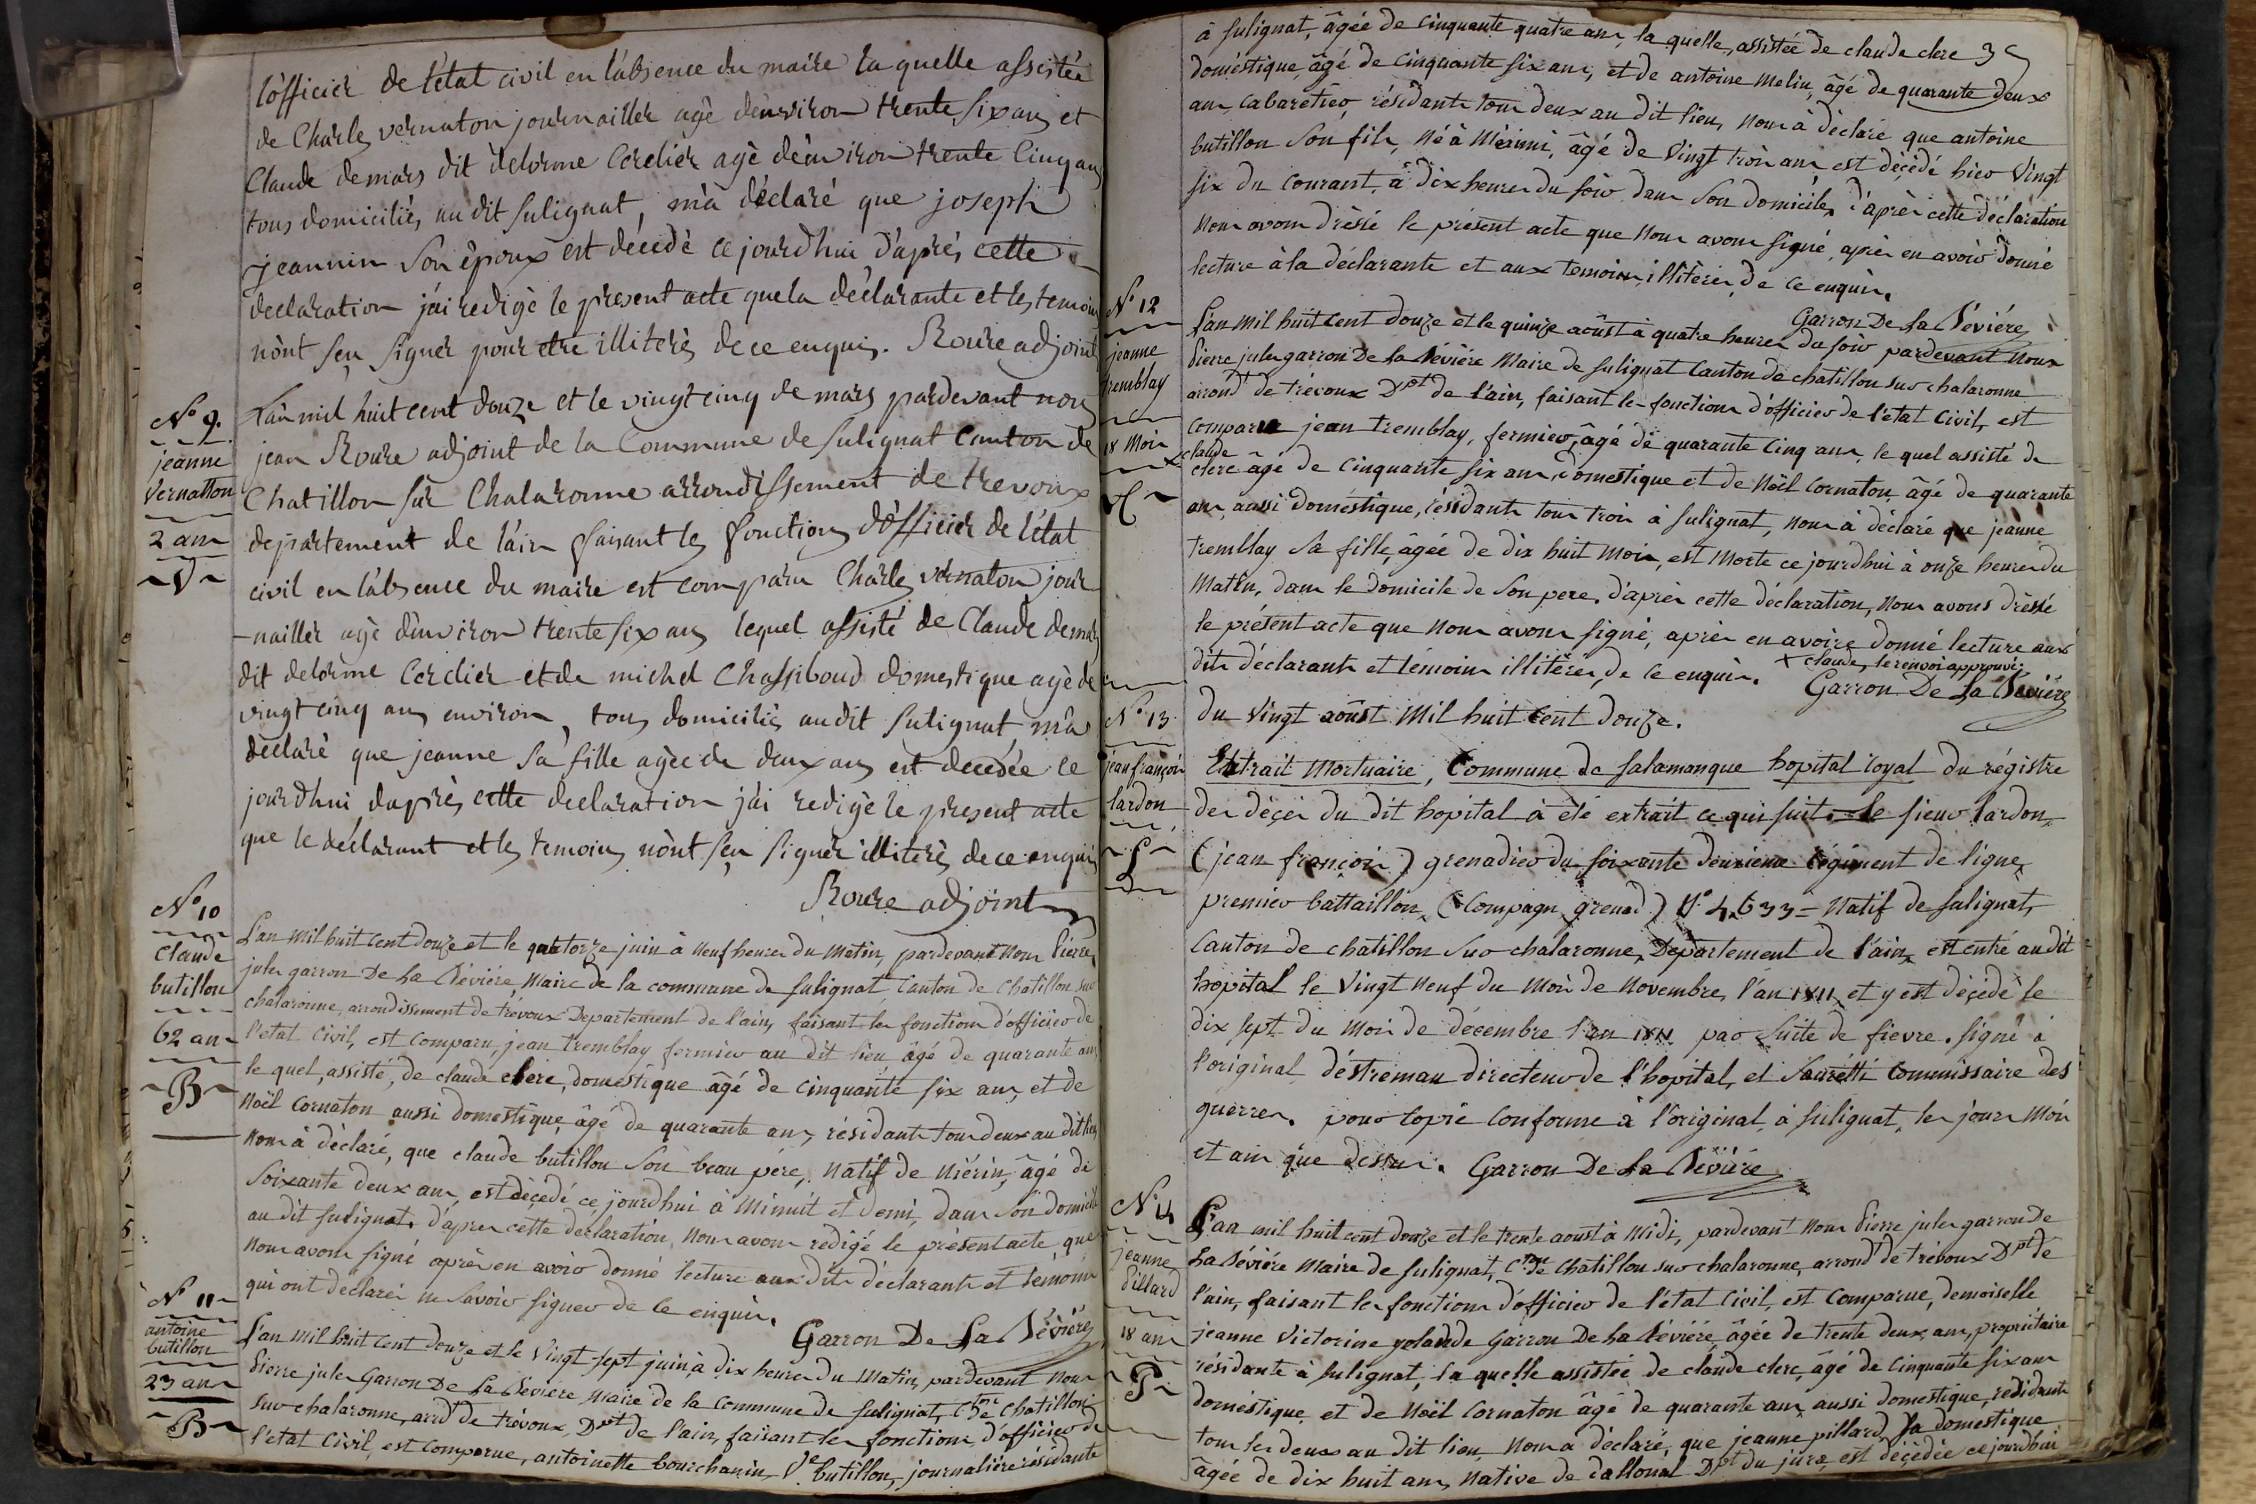 l'officier de l'état civil en l'absence du maire la quelle assistée
de Charle vernaton journaillier agé d'environ trente six ans et
Claude demars dit delorme Cerclier agé d'environ trente Cinq ans
tous domiciliés au dit Sulignat, m'a déclaré que joseph
jeannin Son époux est décédé ce jourd'hui d'aprés cette
declaration j'ai redigé le present acte que la déclarante et les temoins
n'ont seu Signer pour etre illiterés de ce enquis. Roure adjoint
No 9.
jeanne
Vernatton
2 ans
V
L'an mil huit cent douze et le vingt cinq de mars pardevant nous
jean Roure adjoint de la Commune de Sulignat Canton de
Chatillon sur Chalaronne arrondissement de trevoux
departement de l'ain faisant les fonctions d'officier de l'état
civil en l'absence du maire est comparu Charles vernaton jour
-naillier agé d'environ trente six ans lequel assisté de Claude demars
dit delorme Cerclier et de michel Chassiboud domestique agé de
vingt cinq ans environ, tous domiciliés au dit Sulignat m'a
declaré que jeanne Sa fille agée de deux ans est decédée ce
jourd'hui d'aprés cette declaration j'ai redigé le present acte
que le déclarant et les temoins n'ont seu Signer illiterés de ce enquis
Roure adjoint
No 10
Claude
butillon
62 ans
B
L'an mil huit cent douze et le quatorze juin à neuf heures du matin, pardevant nous Pierre
jules garron De La Béviére, Maire de la commune de Sulignat Canton de Chatillon sur
chalaronne, arrondissement de trévoux Departement de l'ain, faisant les fonctions d'officier de
l'etat Civil, est Comparu, jean tremblay fermier au dit lieu âgé de quarante ans
le quel, assisté, de claude clere, domestique âgé de cinquante six ans, et de
Noël Cornaton aussi domestique âgé de quarante ans, résidants tous deux au dit lieu
Nous à déclaré, que claude butillon Son beau pére, natif de Niérin, âgé de
Soixante deux ans, est décédé ce jourd'hui à Minuit et demi, dans Son domicile
au dit Sulignat. d'aprés cette declaration, Nous avons redigé le présent acte que
Nous avons signé aprés en avoir donné lecture aux dits déclarants et temoins
qui ont declarés ne Savoir signer de ce enquis.
Garron De La Béviére
No 11
antoine
butillon
23 ans
B
L'an Mil huit Cent douze et le Vingt sept juin, à dix heures du Matin, pardevant Nous
Pierre jules Garron De La Béviére Maire de la Commune de Sulignat, Cton de Chatillon
sur chalaronne, arrdt de trévoux, Dpt de l'ain, faisant les fonctions d'officier de
l'etat Civil, est Comparue, antoinette bourchanin, Ve butillon, journaliére résidante
à Sulignat, âgée de Cinquante quatre ans, la quelle, assistée de claude clere
domestique, âgé de Cinquante six ans, et de antoine Melin, âgé de quarante deux
ans, Cabaretier, résidants tous deux au dit lieu, Nous à déclaré que antoine
butillon Son fils, né à Mérinni, âgé de Vingt trois ans est décédé hier Vingt
six du Courant, à dix heures du soir dans Son domicile, d'aprés cette déclaration
Nous avons dréssé le présent acte que Nous avons signé, aprés en avoir donné
lecture à la déclarante et aux temoins, illitérés de ce enquis.
Garron De La Béviére
No 12
jeanne
tremblay
18 Mois
T
L'an Mil huit Cent douze et le quinze aoûst à quatre heures du soir pardevant Nous
Pierre jules garron De La Béviére Maire de Sulignat Canton de chatillon sur chalaronne
arrondt de trévoux Dpt de l'ain, faisant les fonctions d'officier de l'état Civil, est
Comparu jean tremblay, fermier, âgé de quarante Cinq ans, le quel assisté de
x claude
clere âgé de cinquante six ans, domestique et de Noël Cornaton âgé de quarante
ans, aussi domestique, résidants tous trois à Sulignat, Nous à déclaré que jeanne
tremblay Sa fille, âgée de dix huit Mois, est Morte ce jourd'hui à onze heures du
Matin, dans le domicile de Son pere. d'aprés cette déclaration, Nous avons dréssé
le présent acte que Nous avons signé, aprés en avoire donné lecture aux
dits déclarants et témoins illitérés, de ce enquis. x claude, le renvoi approuvé.
Garron De La Béviére
No 13
jean françois
lardon
L
du Vingt aoûst Mil huit Cent douze.
Extrait Mortuaire, Commune de Salamanque hopital royal du régistre
des décés du dit hopital à été extrait ce qui suit. le sieur lardon
(jean françois) grenadier du soixante deuxieme régiment de ligne,
premier battaillon, (Compagn grenad) No 4633 = Natif de Salignat,
Canton de chatillon sur chalaronne, Département de l'ain, est entré au dit
hopital le Vingt Neuf du Mois de Novembre, l'an 1811, et y est décédé le
dix sept du Mois de décembre l'an 1811 par Suite de fievre. signé à
l'original, déstremau directeur de l'hopital, et Saurétti Commissaire des
guerres. pour copie Conforme à l'original, à Sulignat, les jours Mois
et ans que dessus. Garron De La Béviére
No 14
jeanne
Pillard
18 ans
P
L'an mil huit cent douze et le trente aoust à Midi, pardevant Nous Pierre jules garron De
La Béviére Maire de Sulignat, Cton de Chatillon sur chalaronne, arrondt de trévoux Dpt de
l'ain, faisant les fonctions d'officier de l'état Civil, est Comparue, demoiselle
jeanne Victorine yolande Garron De La Béviére, âgée de trente deux ans, propriétaire
résidante à Sulignat, la quelle assistée de claude clere, âgé de Cinquante six ans
doméstique et de Noël Cornaton âgé de quarante ans aussi domestique, residants
tous les deux au dit lieu, Nous à déclaré, que jeanne pillard, Sa domestique
âgée de dix huit ans, Native de Dpt du jura, est décédée ce jourd'hui